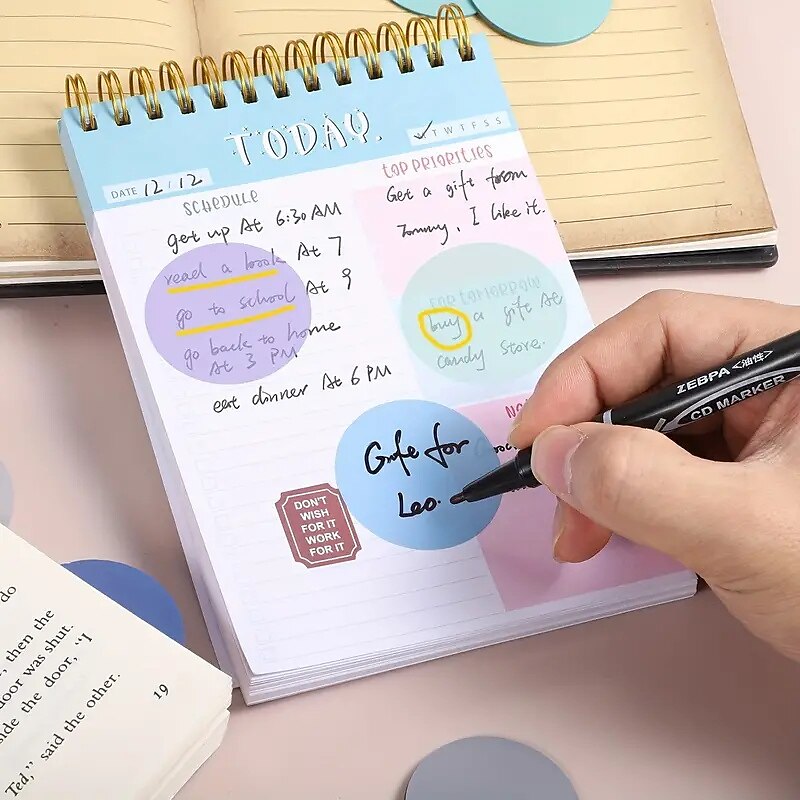 TODAY.
DATE 12/12
T W T F S S
SCHEDULE
get up At 6:30 AM
read a book At 7
go to school At 9
go back to home
At 3 PM
eat dinner At 6 PM
TOP PRIORITIES
Get a gift from
Tommy, I like it.
FOR TOMORROW
buy a gift At
candy store.
Gife for
Leo.
DON'T
WISH
FOR IT
WORK
FOR IT
ZEBPA <油性>
CD MARKER
do
, then the
door was shut.
side the door, "I
Ted," said the other.
19